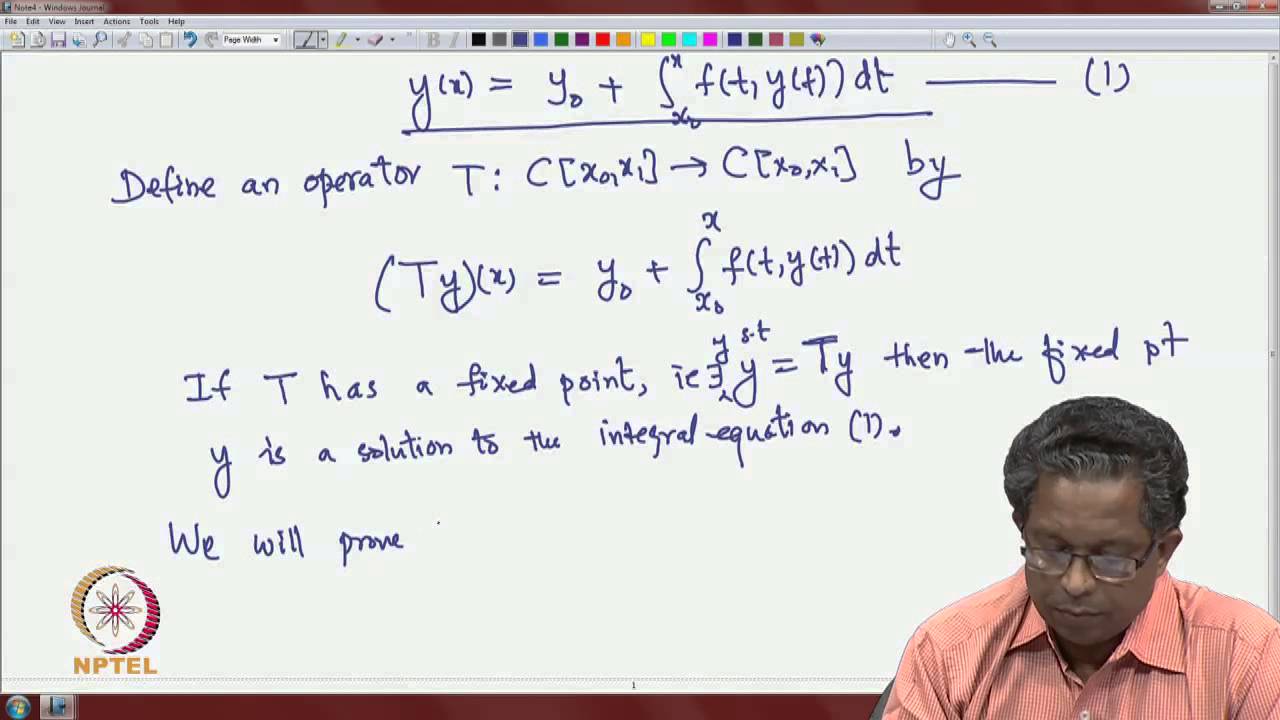 Note4 - Windows Journal
File Edit View Insert Actions Tools Help
Page Width
y(x) = y₀ + ∫ₓ₀ˣ f(t, y(t)) dt ——— (1)
Define an operator T: C[x₀,x₁] → C[x₀,x₁] by
(Ty)(x) = y₀ + ∫ₓ₀ˣ f(t, y(t)) dt
If T has a fixed point, ie ∃ y s.t y = Ty then the fixed pt
y is a solution to the integral equation (1).
We will prove
NPTEL
1